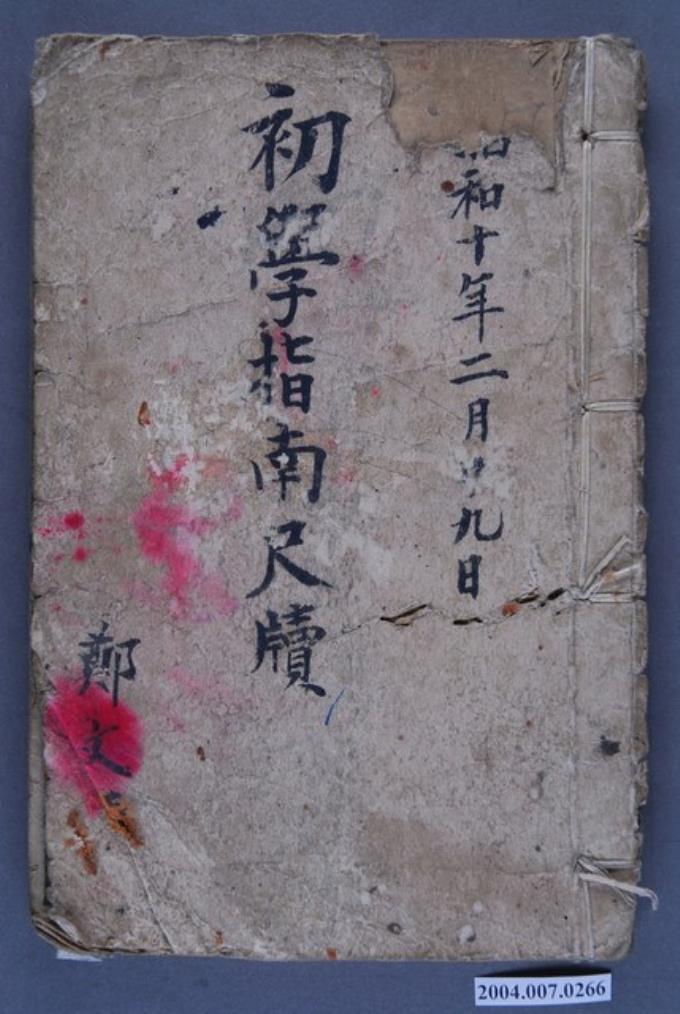 昭和十年二月廿九日
初學指南尺牘
鄭文
2004.007.0266